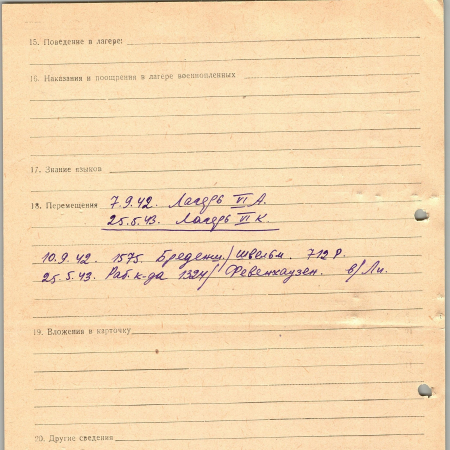 15. Поведение в лагере:
16. Наказания и поощрения в лагере военнопленных
17. Знание языков
18. Перемещения 7.9.42. Лагерь VI А.
25.5.43. Лагерь VI К.
10.9.42. 1575. Бреденш./Швельм. 712 Р.
25.5.43. Раб. к-да 1324/ Февенхаузен. в/Ли.
19. Вложения в карточку
20. Другие сведения